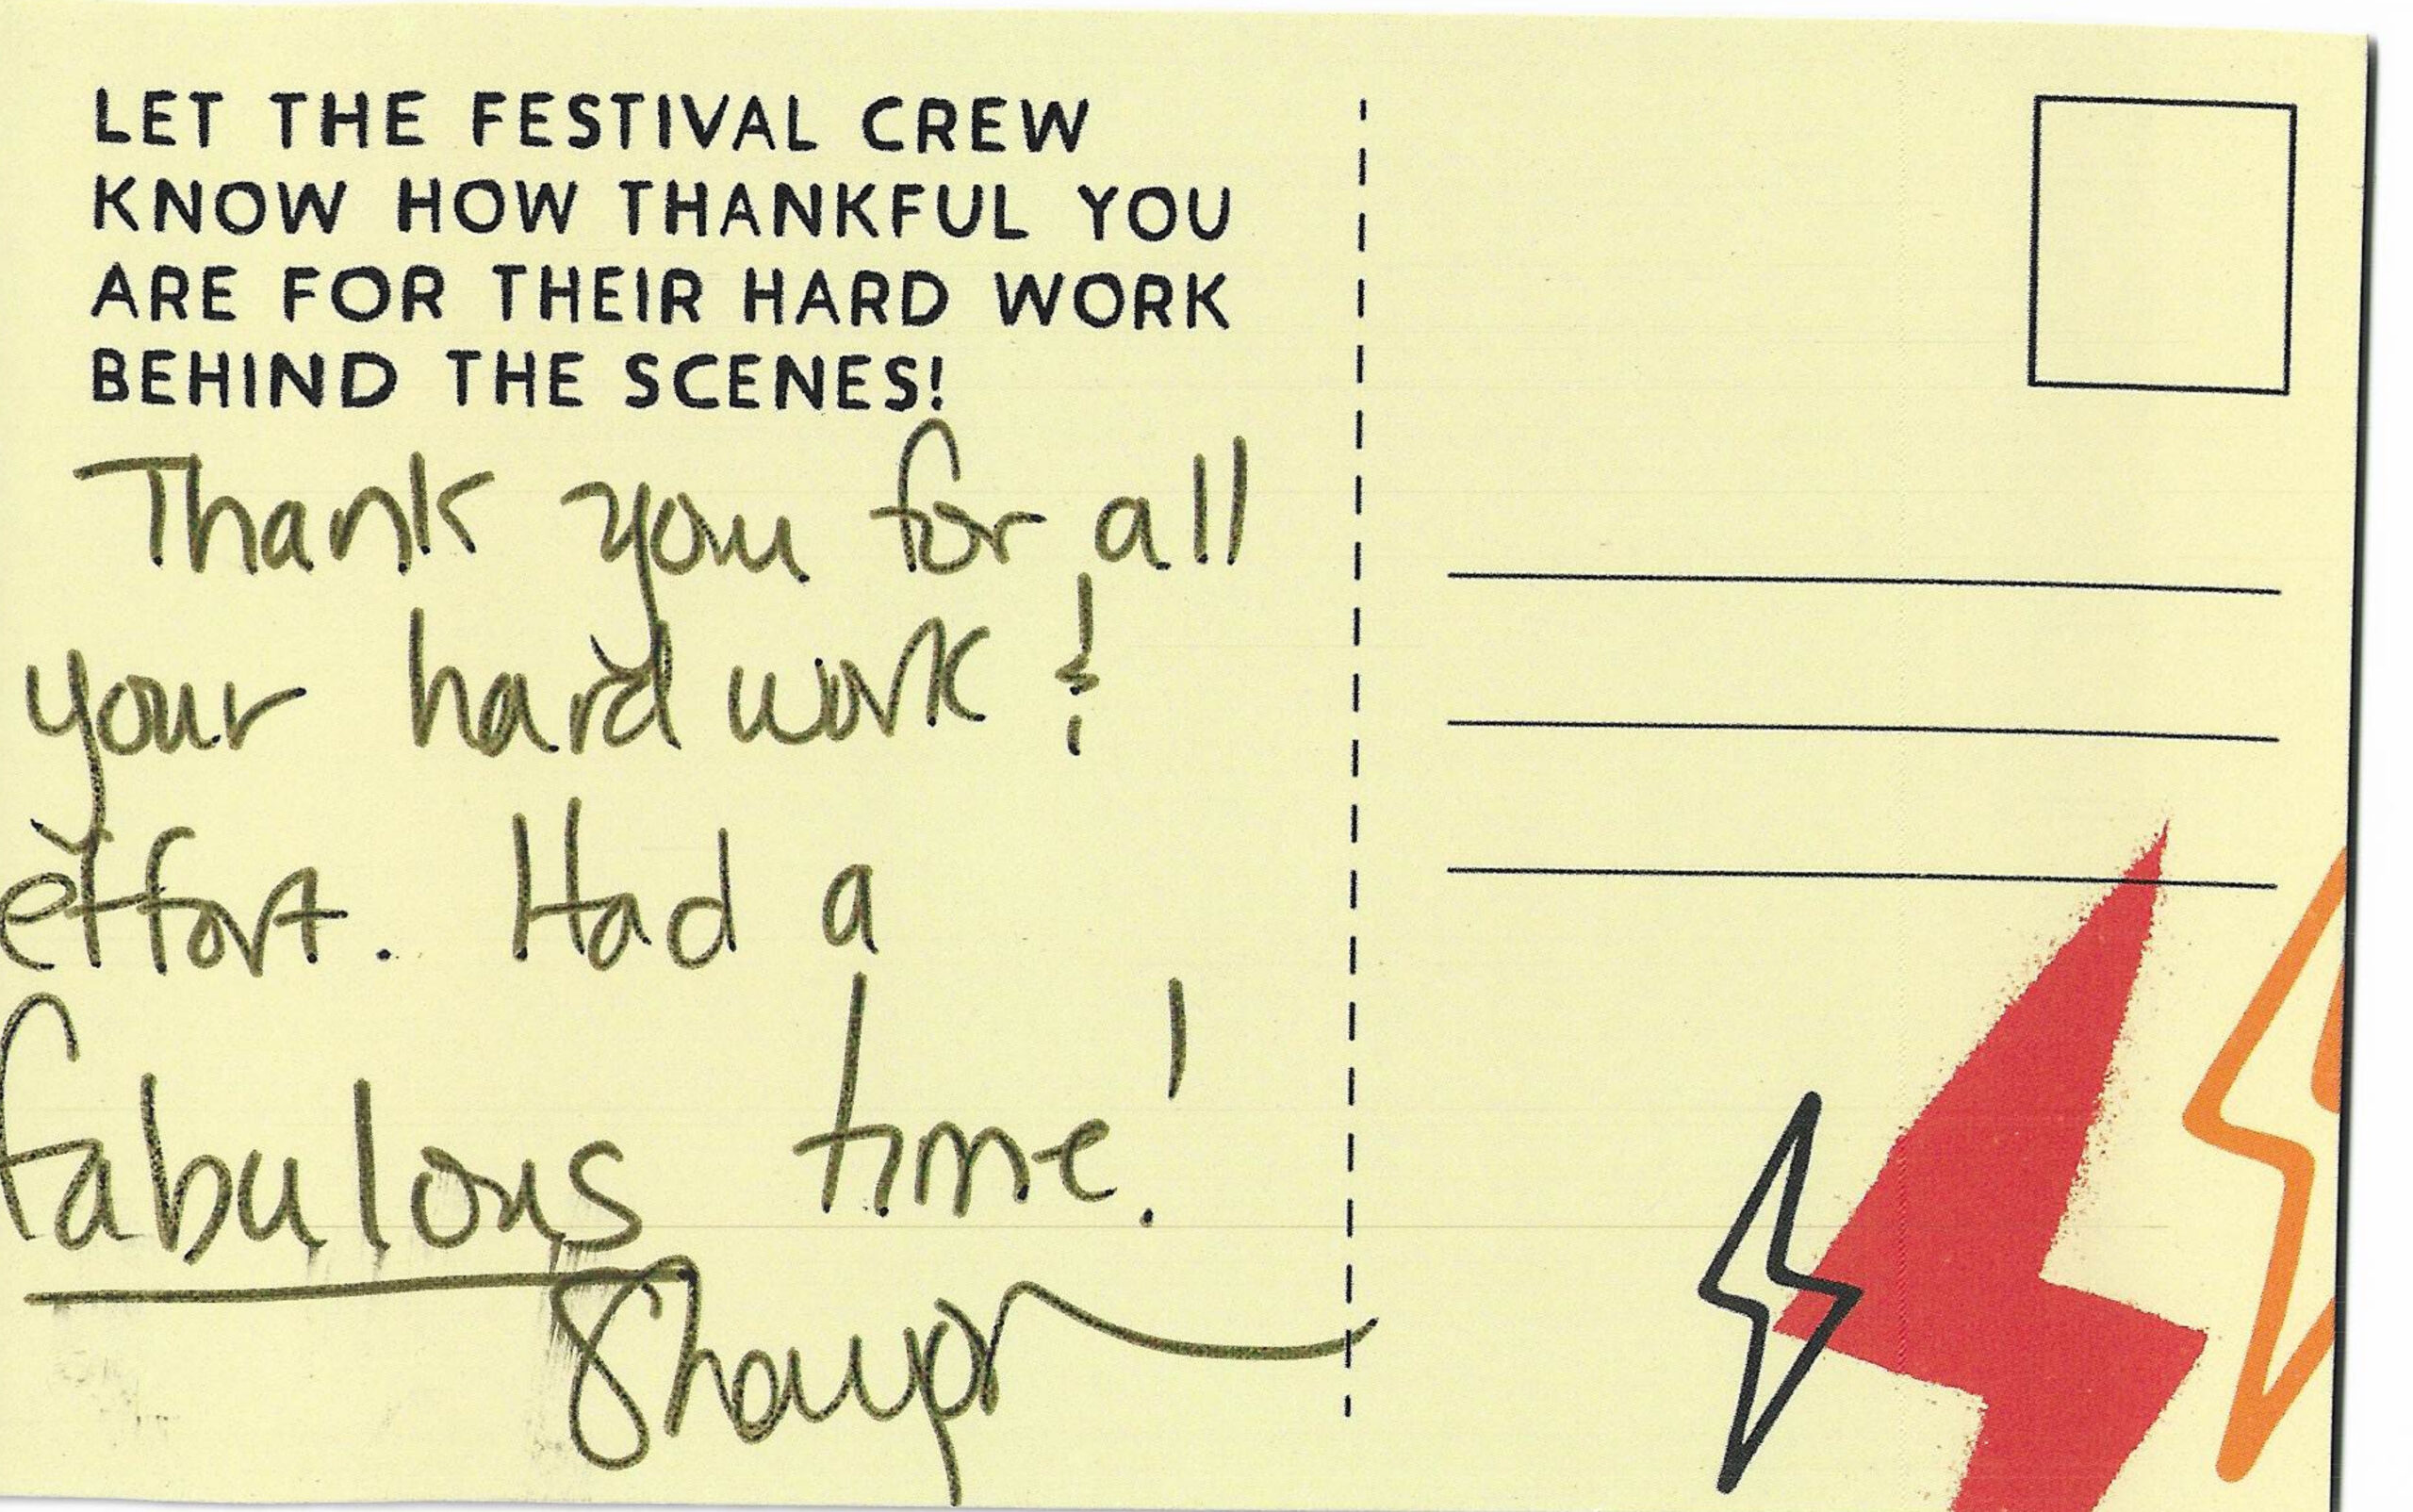 LET THE FESTIVAL CREW
KNOW HOW THANKFUL YOU
ARE FOR THEIR HARD WORK
BEHIND THE SCENES!
Thank you for all
your hard work &
effort. Had a
fabulous time!